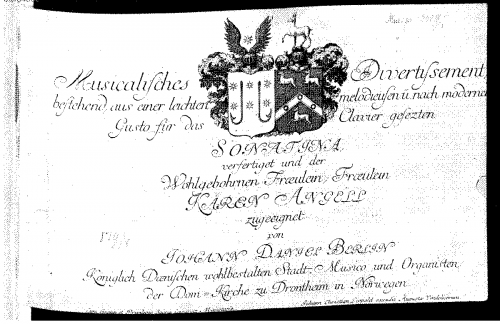 Musicalisches Divertissement,
bestehend aus einer leichten melodieusen u. nach modernen
Gusto für das Clavier gesezten
SONATINA
verfertiget und der
Wohlgebohrnen Fræulein, Fræulein
KAREN ANGELL
zugeeignet
von
JOHANN DANIEL BERLIN
Königlich Dænischen wohlbestalten Stadt-Musico und Organisten
der Dom-Kirche zu Drontheim in Norwegen
Johann Christian Leopold excudit Augustæ Vindelicorum